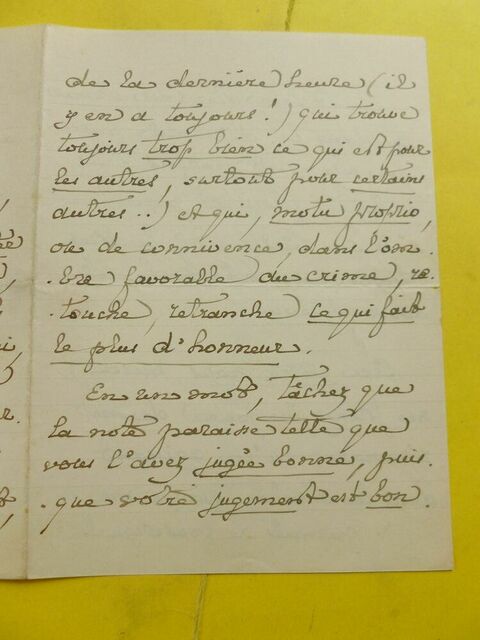 de la dernière heure (il
y en a toujours!) qui trouve
toujours trop bien ce qui est pour
les autres, surtout pour certains
autres..) et qui, motu proprio,
ou de connivence, dans l'om-
-bre favorable du crime, re-
-touche, retranche ce qui fait
le plus d'honneur.
En un mot, tâchez que
la note paraisse telle que
vous l'avez jugée bonne, puis-
-que votre jugement est bon.